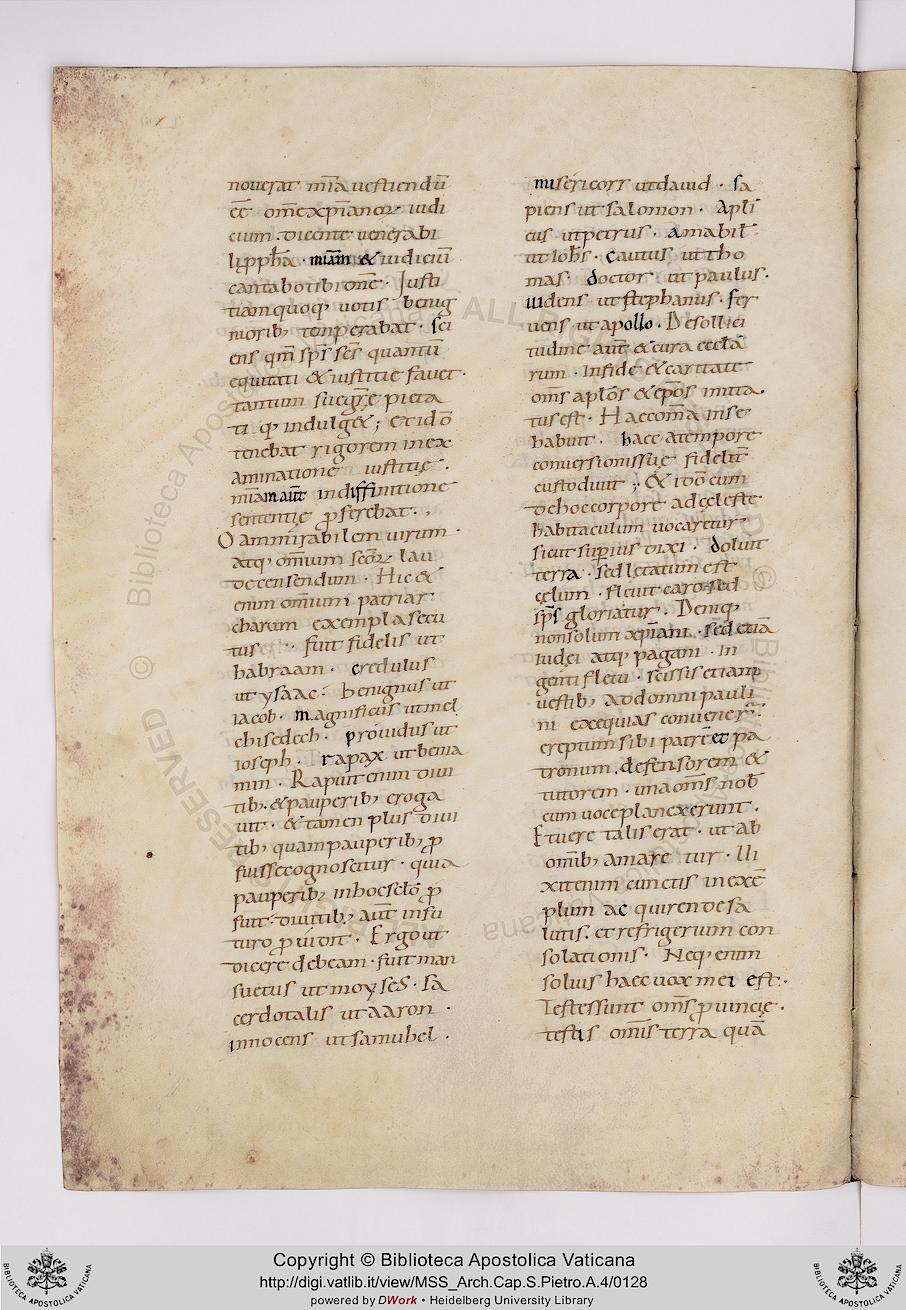 nouerat mīa uestiendū
ēē om̄ē xp̄ianoꝝ iudi
cium. dicente uenerabi
li ꝓph̄a · miām & iudiciū
cantabo tibi dn̄e · Iusti
tiam quoq; uotis benig
moribꝫ temperabat · sci
ens qm̄ sp̄s sc̄s quantū
equitati & iustitie fauet ·
tantum sue gr̄e pieta
ti q; indulg&; Et idō
tenebat rigorem in ex
aminatione iustitię ·
miām aut̄ in diffinitione
sententię ꝓferebat ·
O ammirabilem uirum ·
atq; om̄ium sc̄oꝝ lau
de censendum · Hic &
enim om̄ium patriar
charum exempla secu
tus · fuit fidelis ut
habraam · credulus
ut ysaac · benignus ut
iacob · magnificus ut mel
chisedech · prouidus ut
ioseph · rapax ut benia
min · Rapuit enim diui
tibꝫ · & pauperibꝫ eroga
uit · & tamen plus diui
tibꝫ quam pauperibꝫ ꝓ
fuisse cognoscitur · quia
pauperibꝫ in hoc sclō ꝓ
fuit · diuitibꝫ aut̄ in fu
turo ꝓuidit · Ergo ut
dicere debeam · fuit man
suetus ut moyses · sa
cerdotalis ut aaron ·
innocens ut samuhel ·
misericors ut dauid · sa
piens ut salomon · Apli
cus ut petrus · Amabil̄
ut ioh̄s · cautus ut tho
mas · doctor ut paulus ·
uidens ut stephanus · fer
uens ut apollo · De sollici
tudine aut̄ & cura eccl̄a
rum · in fide & caritate
om̄s apl̄os & ep̄os imita
tus est · Haec om̄a in se
habuit · haec a tempore
conuersionis suę fidelit̄
custodiuit ; & idō cum
de hoc corpore ad cęleste
habitaculum uocaretur
sicut superius dixi · doluit
terra · sed letatum est
cęlum · fleuit caro · sed
sp̄s gloriatur · Deniq;
non solum xp̄iani · sed etiā
iudei atq; pagani · In
genti fletu · scissis etiam
uestibꝫ ad domni pauli
ni exequias conuener ·
ereptum sibi patrē et pa
tronum · defensorem &
tutorem · una om̄s nob̄
cum uoce planxerunt ·
Et uere talis erat · ut ab
omībꝫ amare tur · Ui
xit enim cunctis in exē
plum ac quirende sa
lutis · et refrigerium con
solationis · Neq; enim
solius haec uox mei est ·
Testes sunt om̄s ꝓuincię ·
testis om̄is terra quā
Copyright © Biblioteca Apostolica Vaticana
http://digi.vatlib.it/view/MSS_Arch.Cap.S.Pietro.A.4/0128
powered by DWork • Heidelberg University Library